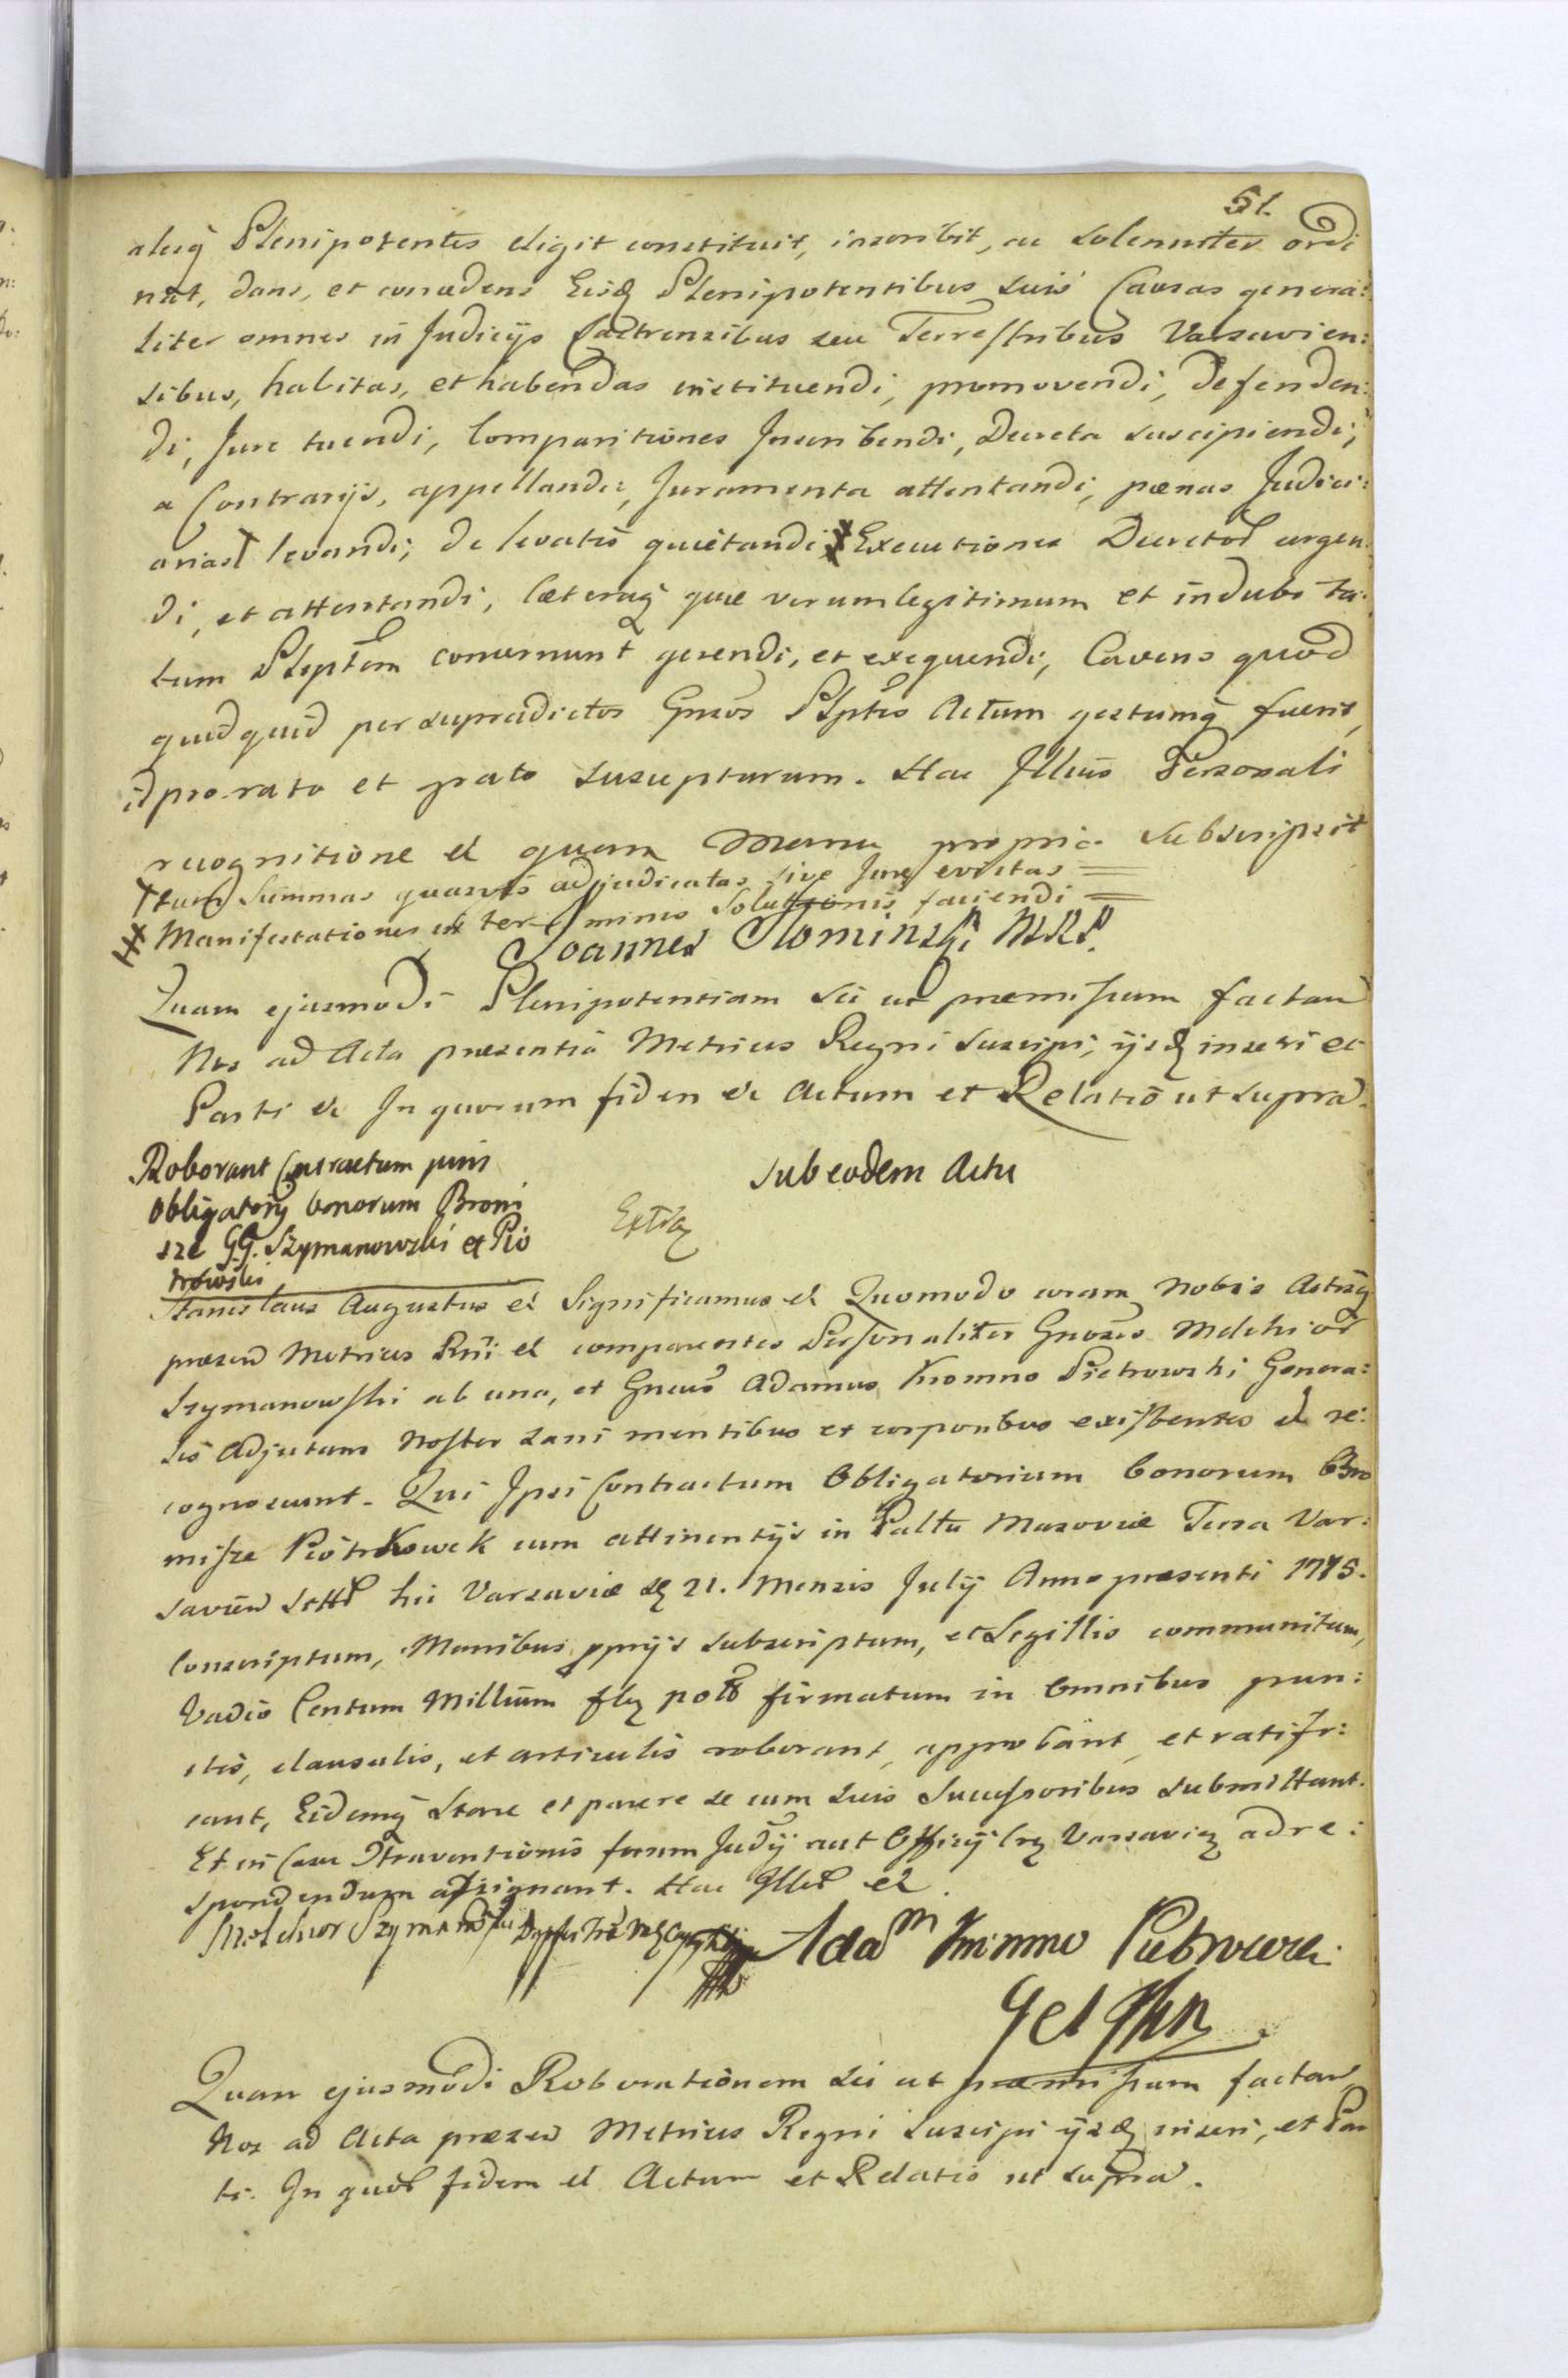 51.
aliasq̄ Plenipotentes eligit constituit, inscribit, ac solenniter ordi
nat, dans, et concedens Eisđ Plenipotentibus suis Causas genera:
liter omnes in Judicijs Castrensibus seu Terrestribus Varsavien:
sibus, habitas, et habendas instituendi, promovendi, defenden:
di, Jure tuendi, Comparitiones Inscribendi, Decreta suscipiendi,
a Contrarijs, appellandi, Juramenta attentandi, pænas Judici:
arias levandi; de levatis quietandi Executiones Decretor urgen
di, et attentandi, Cæteraq̄ quæ verum legitimum et indubi ta:
tum Plenptem concernunt gerendi, et exequendi, Cavens quod
quidquid per supradictos Gnsos Plptes Actum gestumq̄ fuerit,
id pro rato et grato suscepturum. Hac Illius Personali
recognitione et quam Manu propria subscripsit
tum Summas quasvis adjudicatas sive Jure evictas =
Manifestationes in ter minis Solutionis faciendi =
Joannes Słominski MRP.
Quam ejusmodi Plenipotentiam sic ut præmissum factam
Nos ad Acta præsentia Metrices Regni suscipi, ijsđ inseri et
Parti et In quorum fidem et Actum et Relatio ut supra.
Roborant Contractum juris
Obligatorij bonorum Broni
sze GG. Szymanowski et Pio
trowski
sub eodem Actu
Extđ
Stanislaus Augustus et Significamus et Quomodo coram Nobis Actisq̄
præsen Metrices Rni et comparentes Personaliter Gnosus Melchior
Szymanowski ab una, et Gnsus Adamus Kromno Pietrowski Genera:
lis Adjutans Noster sani mentibus et corporibus existentes et re:
cognoscunt. Qui Ipsi Contractum Obligatorium bonorum Bro
nisze Piotrkowek cum attinentijs in Palttu Masoviæ Terra Var:
savien hic Varsaviæ 21. Mensis Julij Anno præsenti 1785.
Conscriptum, Manibus pprijs subscriptum, et Sigillis communitum,
Vadio Centum Millium flr pol firmatum in Omnibus pun:
ctis, clausulis, et articulis roborant, approbant, et ratifi:
cant, Eidemq̄ Stare et parere se cum suis Successoribus submittunt.
Et in Casu Ctraventionis forum Judij aut Officij Varsavien ad re:
spondendum assignant. Hac Illor et.
Melchior Szymanowski
Adam Kromno Pietrowski
Quam ejusmodi Roborationem sic ut præmissum factam
Nos ad Acta præsen Metrices Regni suscipi ijsđ inseri, et Par
ti. In quor fidem et Actum et Relatio ut supra.